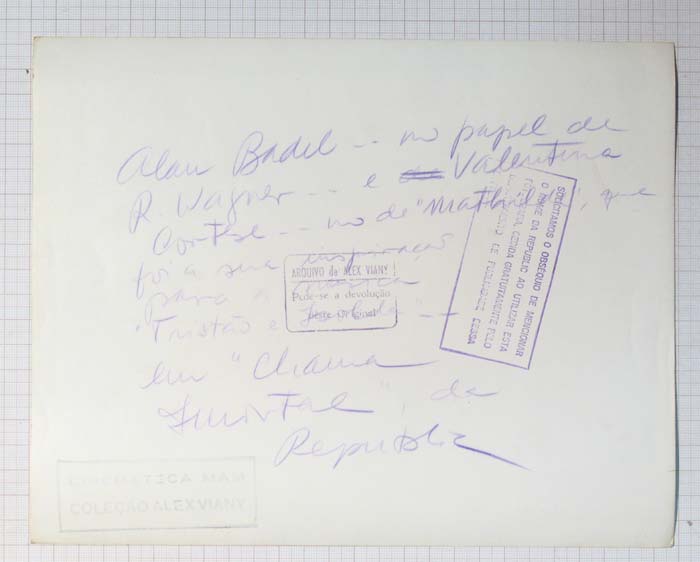 Alan Badel -- no papel de
R. Wagner -- e Valentina
Cortese -- no de "Mathilde", que
foi a sua inspiração
para a música
"Tristão e Isolda" --
em "Chama
Imortal", da
Republic
ARQUIVO de ALEX VIANY
Pede-se a devolução
deste Original
SOLICITAMOS O OBSEQUIO DE MENCIONAR
O NOME DA REPUBLIC AO UTILIZAR ESTA
CEDIDA GRATUITAMENTE PELO
CINEMATECA MAM
COLEÇÃO ALEX VIANY